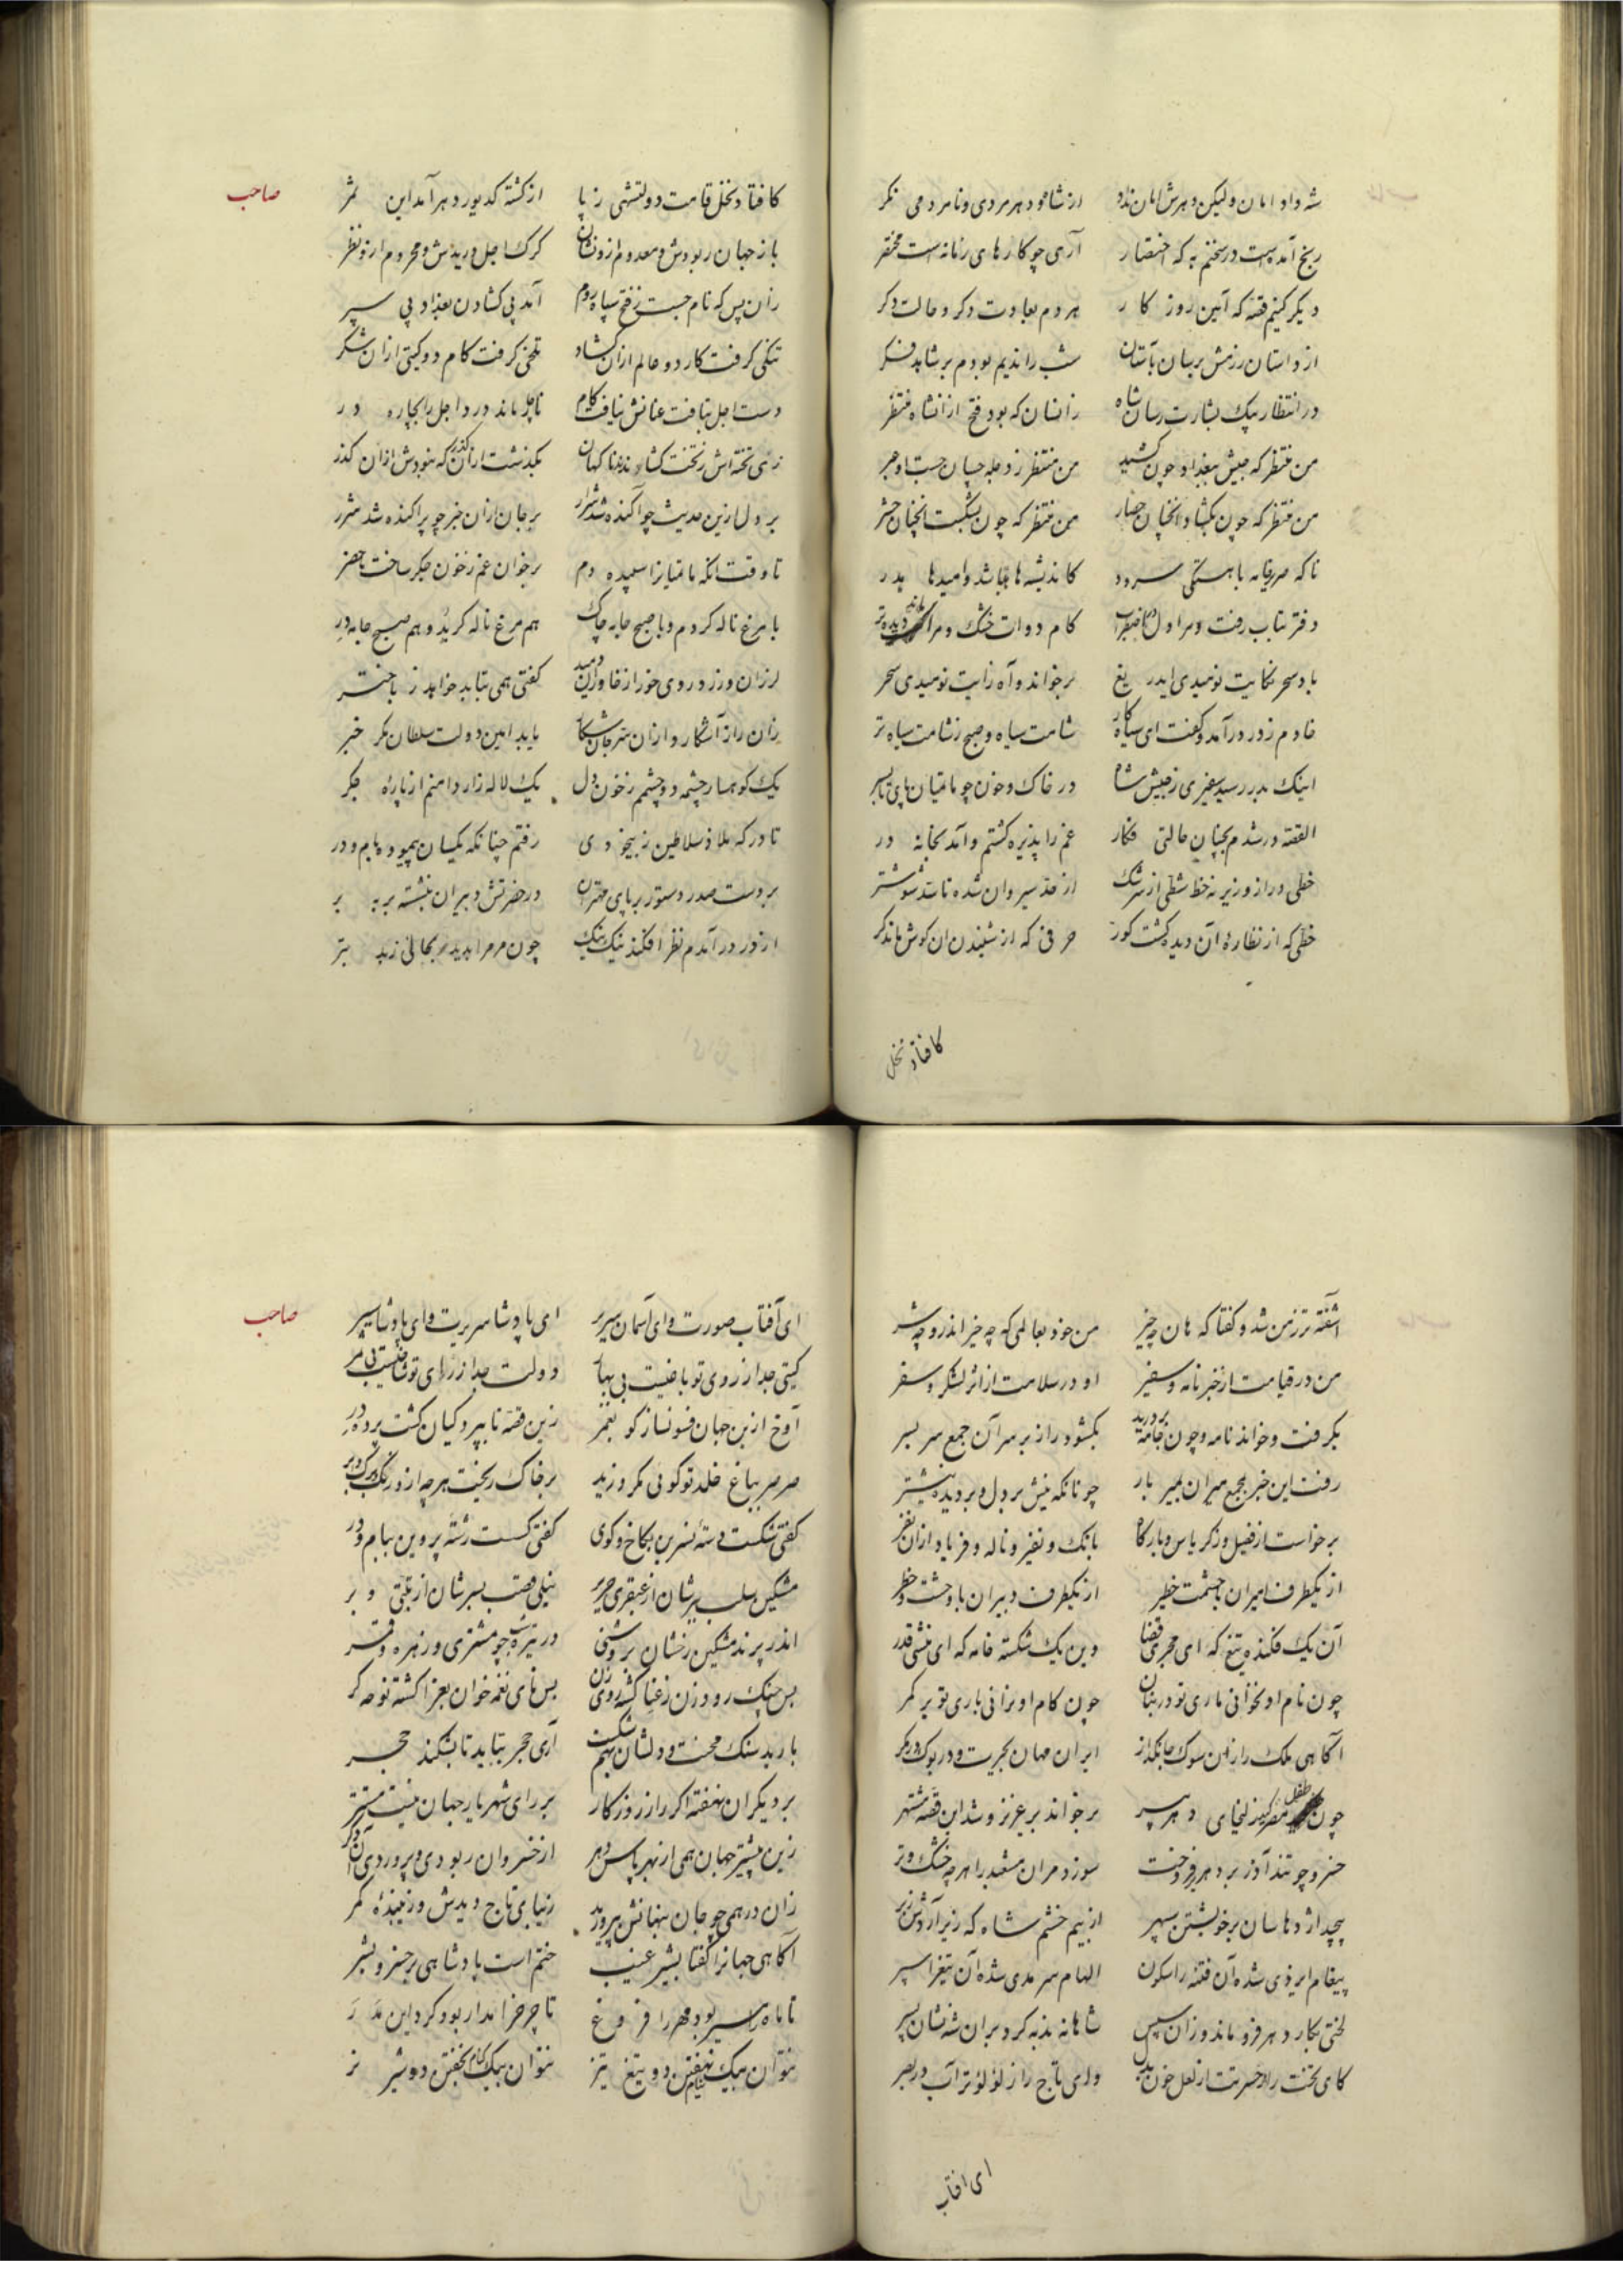 شه داد امان ولیکن دهرش امان نداد از شاه و دهر مردی و نامردمی نکر
رنج آمدست در سخنم به که اختصار آری چو کارهای زمانه است مختصر
دیکر کنیم قصه که آئین روز کار هر دم بعادت دکر و حالت دکر
از داستان رزمش بر سان باستان شب را ندیم بودم بر شاهد فکر
در انتظار پیک بشارت رسان شاه زانسان که بود فتح از آنشاه منتظر
من منتظر که جیش ببغداد چون کشید من منتظر ز دجله چسان جست او عبر
من منتظر که چون بکشاد آنچنان حصار من منتظر که چون بشکست آنچنان حشر
ناکه صریر خامه باهستکی سرود کاندیشه ها تباه شد و امیدها هدر
دفتر بتاب رفت و مرا دل در اضطراب کام دوات خشک و مرا ماند دیده تر
باد سحر حکایت نومیدی ای دریغ بر خواند و آه زایت نومیدی سحر
خادم ز در در آمد و کفت ای سیاه کار شامت سیاه و صبح ز شامت سیاه تر
اینک بدر رسید سفیری ز جیش شاه در خاک و خون چو ماهیان پای تا بسر
القصه در شدم بچنان حالتی فکار غم را پذیره کشتم و آمد بخانه در
خطی دراز و زیر نه خط شطی از سرشک از حد سیروان شده تا سد شوشتر
خطی که از نظاره آن دیده کشت کور حرفی که از شنیدن آن کوش ماند کر
کافتاد نخل
صاحب
کافتاد نخل قامت دولتشهی ز پا از کشته کدیور دهر آمد این ثمر
باز جهان ربودش و معدوم ازو نشان کرک اجل دریدش و محروم ازو نظر
زان پس که نام جست ز فتح سپاه روم آمد پی کشادن بغداد پی سپر
تنکی کرفت کار دو عالم از آن کشاد تلخی کرفت کام دو کیتی از آن شکر
دست اجل بتافت عنانش نیافت کام ناچار ماند در دو اجل را بچاره در
زی تخته اش ز تخت کشاندند ناکهان بکذشت از آن کذر که نبودش از آن کذر
بر دل ازین حدیث چو آکنده شد شرار بر جان از آن خبر چو پراکنده شد شرر
تا وقت آنکه بامیان را سپیده دم بر خوان غم ز خون جکر ساخت ماحضر
با مرغ ناله کردم و با صبح جامه چاک هم مرغ ناله کر بد و هم صبح جامه در
لرزان و زرد روی خور از خاوران دمید کفتی همی نتابد خواهد ز باختر
زان راز آشکار و از آن سر جان شکار یابد امین دولت سلطان مکر خبر
یک کوهسار چشمه دو چشمم ز خون دل یک لاله زار دامنم از پاره جکر
تا درکه ملاذ سلاطین ز بیخودی رفتم چنانکه یکسان پیمود بام و در
بر دست صدر دستور بر پای مهتران در حضرتش دبیران بنشسته بر به بر
از در در آمدم نظر افکند نیک نیک چون مر مرا بدید بحالی ز بد بتر
آشفته تر ز من شد و کفتا که هان چه چیز من خود بعالمی که چه خیر اندر و چه شر
من در قیامت از خبر نامه و سفیر او در سلامت از اثر لشکر و سفر
بکرفت و خواند نامه و چون جامه بردرید بکشود راز بر سر آن جمع سر بسر
رفت این خبر بجمع میران بمیر بار چونانکه نیش بر دل و بر دیده نیشتر
برخاست از فصیل و ز کریاس و بارکاه بانک و نفیر و ناله و فریاد از آن نفر
از یکطرف امیران با حشمت خطیر از یکطرف دبیران با وحشت و خطر
آن یک فکنده تیغ که ای مجری قضا وین یک شکسته خامه که ای منشی قدر
چون نام او نخوانی ناری تو در بنان چون کام او نرانی باری تو بر کمر
آکاهی ملک را زان سوک جانکداز ایران مهان بحیرت و در بوک و در مکر
چون طفل مصر کیز لیخای دهر پیر بر خواند بر عزیز و شد این قصه مشتهر
خسرو چو تند آذر برد هر بر فروخت سوزد مر آن مشعبد را هر چه خشک و تر
پیچد اژدها سان بر خویشتن سپهر از بیم خشم شاه که زیر آردش ز بر
پیغام ایزدی شده آن فتنه را سکون الهام سرمدی شده آن تیغ را سپر
لختی بکار دهر فرو ماند و زان سپس شاهانه ندبه کرد بر آن شه نشان پسر
کای تخت را ز حسرتت از لعل خون بدل وای تاج را ز لؤلؤ تر آب در بصر
ای افتاب
صاحب
ای آفتاب صورت و ای آسمان سریر ای پادشا سریرت و ای پادشا سیر
کیتی جدا ز روی تو باغیست بی بها دولت جدا ز رای تو شاخیست بی ثمر
آوخ ازین جهان فسونساز کو بغمز زین قصه تا ببرد کیان کشت پرده در
صرصر بباغ خلد تو کوئی مکر وزید بر خاک ریخت هر چه ازو رنک و برک و بر
کفتی شکست دسته نسرین بکاخ و کوی کفتی کسست رشته پروین ببام و در
مشکین سلب ببرشان از عبقری حریر نیلی قصب بسرشان از تبتی و بر
اندر پرند مشکین رخشان بروشنی در تیره شب چو مشتری و زهره و قمر
بس چنک رود زن ز عنا کشته روی زن بس نای نغمه خوان بعزا کشته نوحه کر
بارید سنک محنت و دلشان بهم شکست آری حجر بباید تا بشکند حجر
بر دیکران نهفته اکر راز روزکار بر رای شهریار جهان نیست مستتر
زین پیشتر جهان همی از بهر پاس دهر از خسروان ربودی و پروردی آن دکر
زان در همی چو جان بنهانش پرورید زیبای تاج دیدش و زیبنده کمر
آکاهی جهانرا کفتا بشیر غیب ختم است پادشاهی بر خسرو بشر
تا ماه هر سپهر بود مهر را فروغ تا چرخ را مدار بود کرد این مدر
نتوان بیک نیام نهفتن دو تیغ تیز نتوان بیک کنام بخفتن دو شیر نر